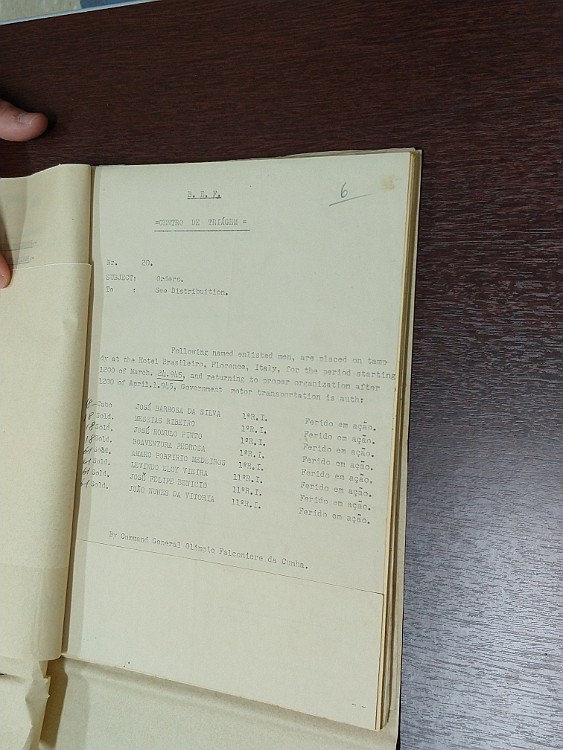 B. E. F.
6
=CENTRO DE TRIÁGEM =
Nr. 20.
SUBJECT: Orders.
To : See Distribuition.
Following named enlisted men, are placed on temp-
at the Hotel Brasileiro, Florence, Italy, for the period starting
1200 of March, 24.945, and returning to proper organization after
1200 of April.1.945, Government motor transportation is auth:
Cabo JOSÉ BARBOSA DA SILVA 1ºR.I. Ferido em ação.
Sold. MESSIAS RIBEIRO 1ºR.I. Ferido em ação.
Sold. JOSÉ ROMULO PINTO 1ºR.I. Ferido em ação.
Sold. BOAVENTURA PEDROSA 1ºR.I. Ferido em ação.
Sold. AMARO PORFIRIO MEDEIROS 1ºR.I. Ferido em ação.
Sold. LEVINDO ELOY VIEIRA 11ºR.I. Ferido em ação.
Sold. JOSÉ FELIPE BENICIO 11ºR.I. Ferido em ação.
Sold. JOÃO NUNES DA VITORIA 11ºR.I. Ferido em ação.
By Command General Olimpio Falconiere da Cunha.